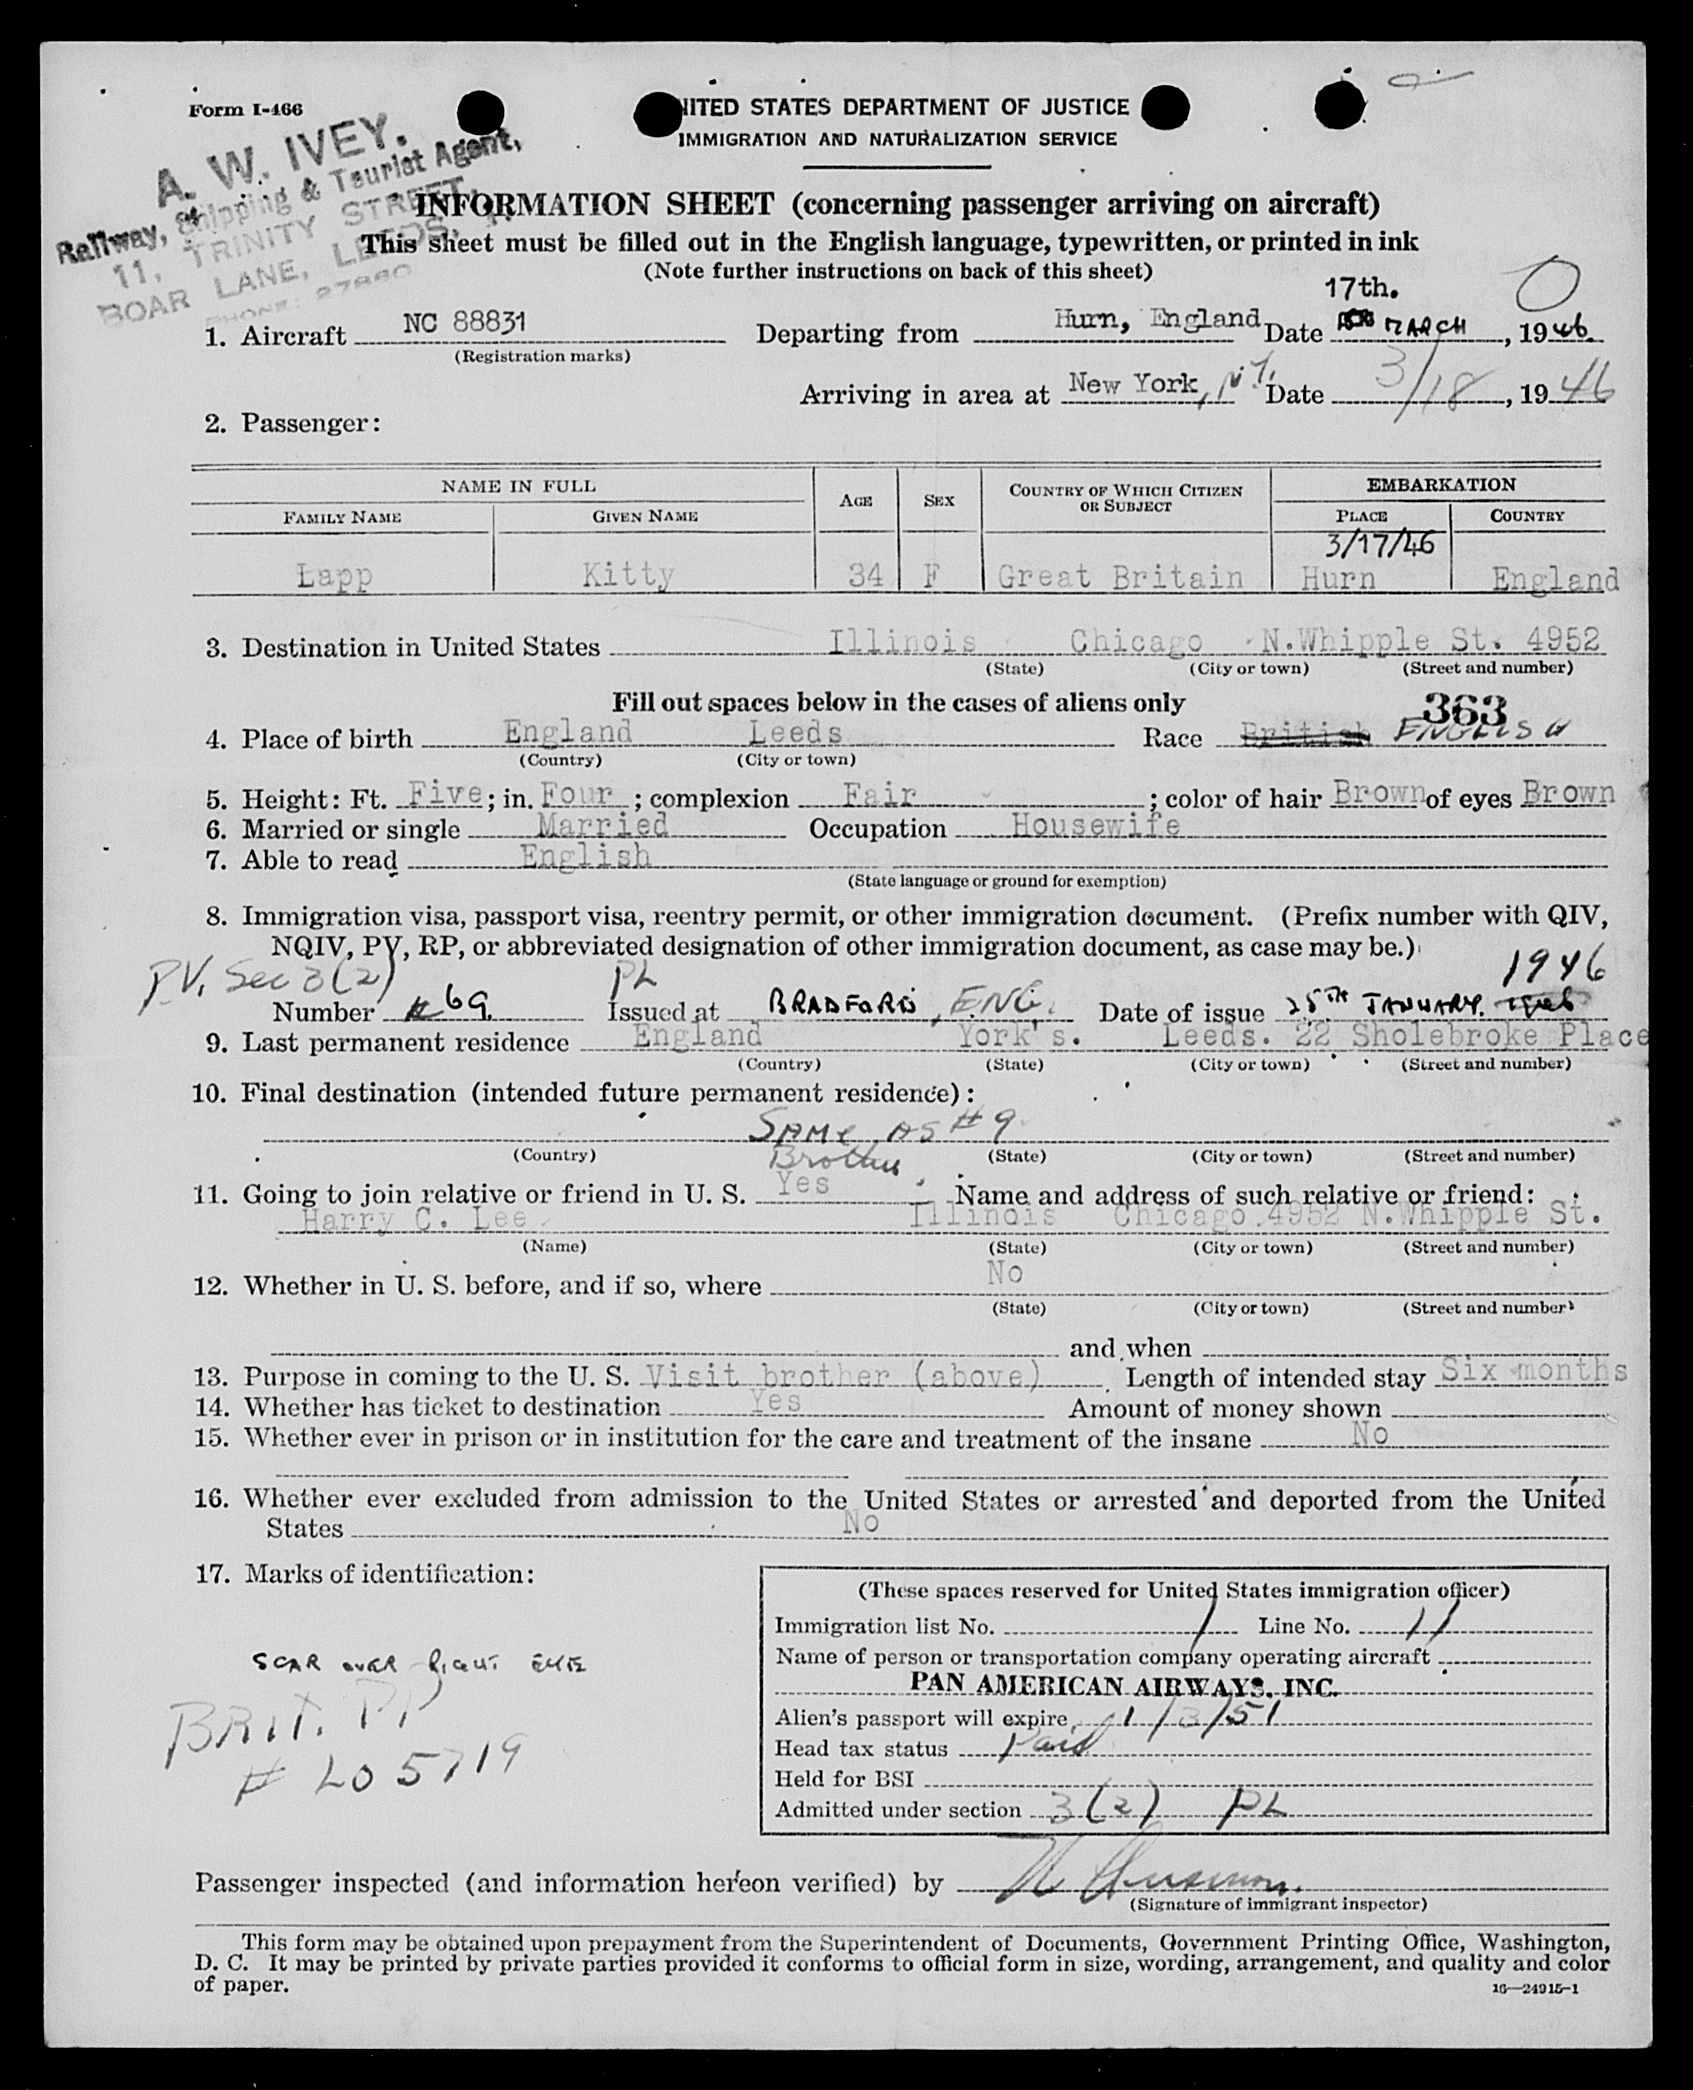 Form I-466
A. W. IVEY.
Railway, Shipping & Tourist Agent,
11, TRINITY STREET,
BOAR LANE, LEEDS, 1.
PHONE: 27880
NITED STATES DEPARTMENT OF JUSTICE
IMMIGRATION AND NATURALIZATION SERVICE
INFORMATION SHEET (concerning passenger arriving on aircraft)
This sheet must be filled out in the English language, typewritten, or printed in ink
(Note further instructions on back of this sheet)
17th.
1. Aircraft NC 88831 Departing from Hurn, England Date MARCH, 1946.
(Registration marks)
Arriving in area at New York, N.Y. Date 3/18, 1946
2. Passenger:
NAME IN FULL AGE SEX COUNTRY OF WHICH CITIZEN OR SUBJECT EMBARKATION
FAMILY NAME GIVEN NAME PLACE COUNTRY
3/17/46
Lapp Kitty 34 F Great Britain Hurn England
3. Destination in United States Illinois Chicago N.Whipple St. 4952
(State) (City or town) (Street and number)
Fill out spaces below in the cases of aliens only 363
4. Place of birth England Leeds Race British ENGLISH
(Country) (City or town)
5. Height: Ft. Five; in. Four; complexion Fair; color of hair Brown of eyes Brown
6. Married or single Married Occupation Housewife
7. Able to read English
(State language or ground for exemption)
8. Immigration visa, passport visa, reentry permit, or other immigration document. (Prefix number with QIV,
NQIV, PV, RP, or abbreviated designation of other immigration document, as case may be.)
PV. Sec 3(2) PL 1946
Number # 69. Issued at BRADFORD, ENG. Date of issue 25TH JANUARY.
9. Last permanent residence England York's. Leeds. 22 Sholebroke Place
(Country) (State) (City or town) (Street and number)
10. Final destination (intended future permanent residence):
SAME AS #9
(Country) (State) (City or town) (Street and number)
Brother
11. Going to join relative or friend in U. S. Yes Name and address of such relative or friend:
Harry C. Lee Illinois Chicago 4952 N.Whipple St.
(Name) (State) (City or town) (Street and number)
12. Whether in U. S. before, and if so, where No
(State) (City or town) (Street and number)
and when
13. Purpose in coming to the U. S. Visit brother (above) Length of intended stay Six months
14. Whether has ticket to destination Yes Amount of money shown
15. Whether ever in prison or in institution for the care and treatment of the insane No
16. Whether ever excluded from admission to the United States or arrested and deported from the United
States No
17. Marks of identification:
SCAR OVER RIGHT EYE
BRIT. PP
# LO 5719
(These spaces reserved for United States immigration officer)
Immigration list No. 1 Line No. 11
Name of person or transportation company operating aircraft
PAN AMERICAN AIRWAYS, INC.
Alien's passport will expire 1/3/51
Head tax status Paid
Held for BSI
Admitted under section 3(2) PL
Passenger inspected (and information hereon verified) by
(Signature of immigrant inspector)
This form may be obtained upon prepayment from the Superintendent of Documents, Government Printing Office, Washington,
D. C. It may be printed by private parties provided it conforms to official form in size, wording, arrangement, and quality and color
of paper. 16—24915-1